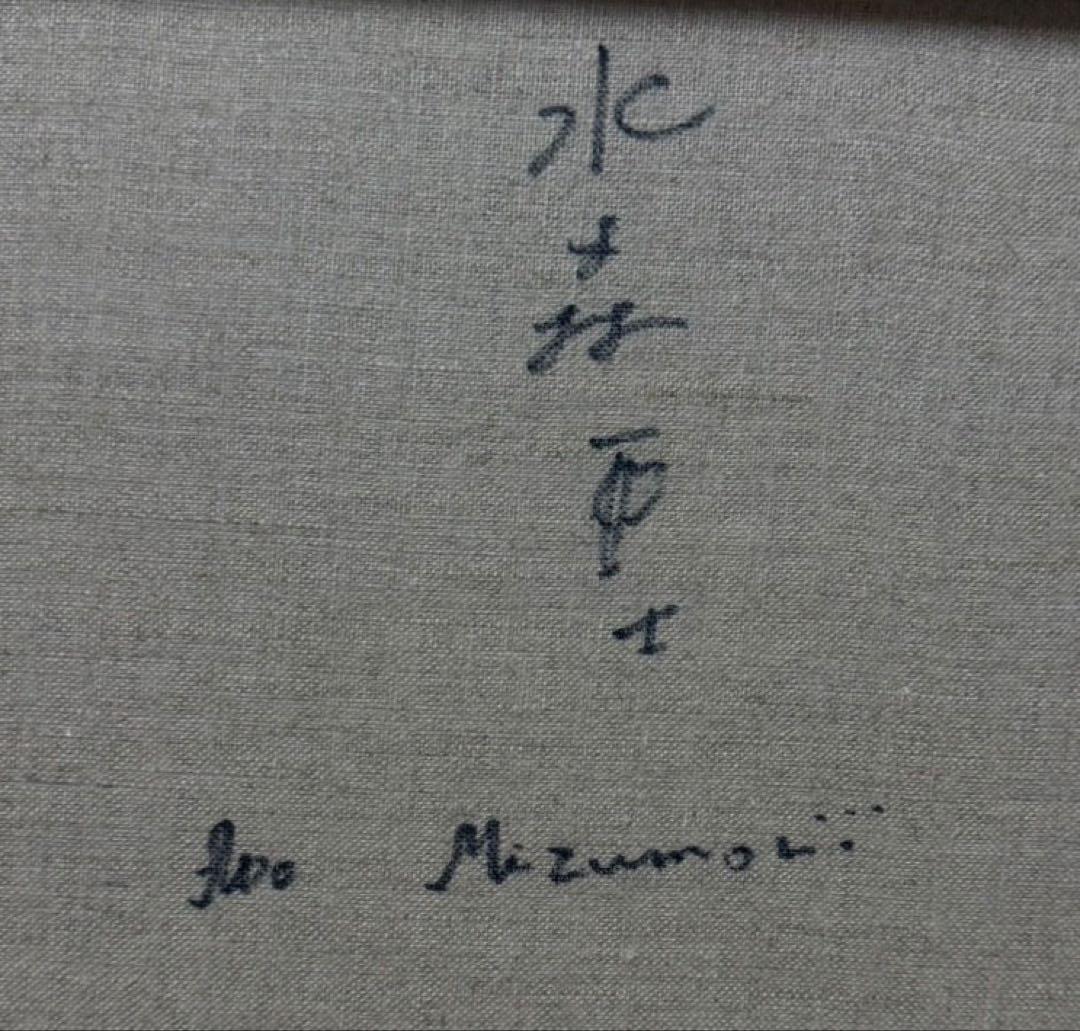 水森亜土
Ado Mizumori